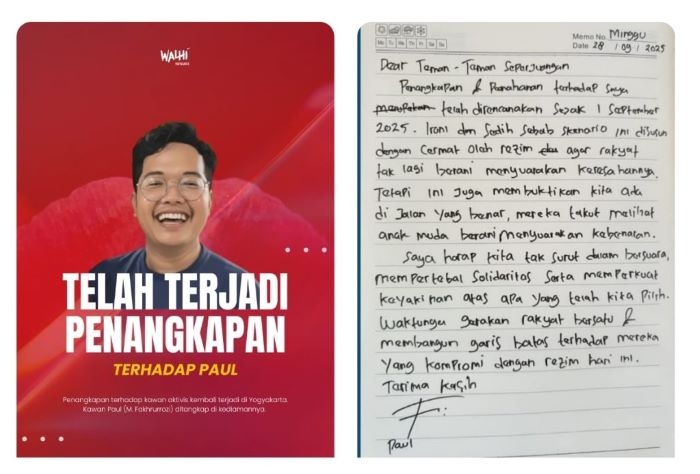 WALHI
TELAH TERJADI
PENANGKAPAN
TERHADAP PAUL
Penangkapan terhadap kawan aktivis kembali terjadi di Yogyakarta.
Kawan Paul (M. Fakhrurrozi) ditangkap di kediamannya.
Memo No. Minggu
Mo Tu We Th Fr Sa Su
Date 28 / 09 / 2025
Dear Taman - Taman Seperjuangan
Penangkapan & Panahanan terhadap saya
merupakan telah direncanakan Sejak 1 September
2025. Ironi dan Sedih Sebab Skenario ini disusun
dengan Cermat Olah rezim agar rakyat
tak lagi berani menyuarakan keresahannya.
Tetapi ini Juga membuktikan kita ada
di Jalan Yang benar, mereka takut melihat
anak muda berani menyuarakan kebenaran.
Saya harap kita tak surut dalam bersuara,
mempertebal Solidaritas Serta memperkuat
keyakinan atas apa yang telah kita Pilih.
Waktunya gerakan rakyat bersatu &
membangun garis batas terhadap mereka
Yang kompromi dengan rezim hari ini.
Tarima kasih
Paul